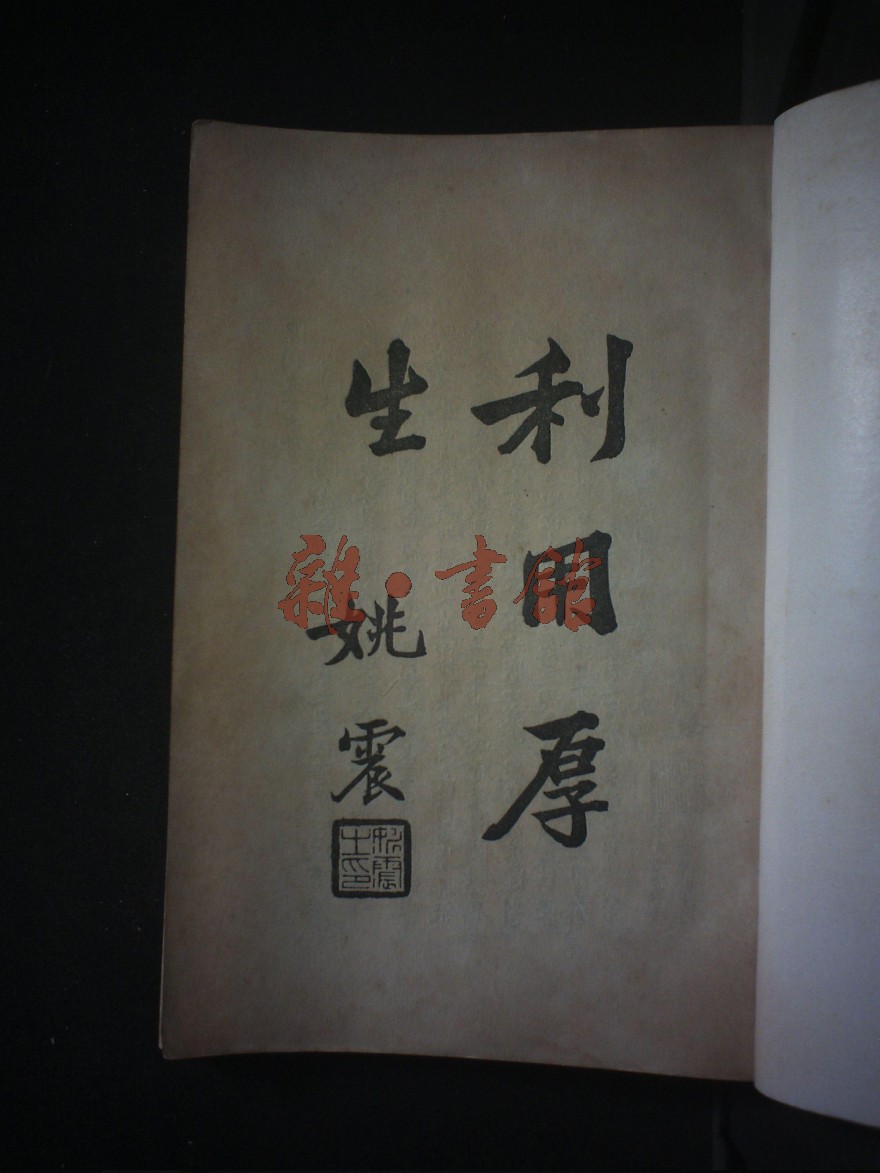 利用厚
生
姚震
雜·書館